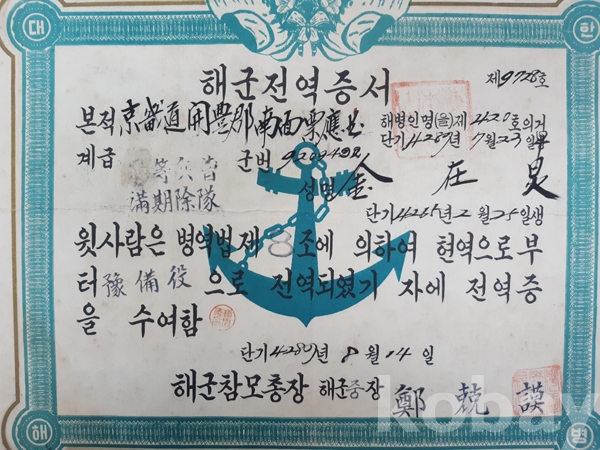 대 한
해군전역증서
제9728호
본적 京畿道開豊郡南面
해병인명(을)제 호의거
단기4289년 7월23일
계급 군번 9209492
滿期除隊
성명 金 在
단기4265년2월25일생
윗사람은 병역법제8조에 의하여 현역으로부
터 豫備役 으로 전역되였기 자에 전역증
을 수여함
단기4289년 8월14일
해군참모총장 해군중장 鄭 兢 謨
kobay
해 병